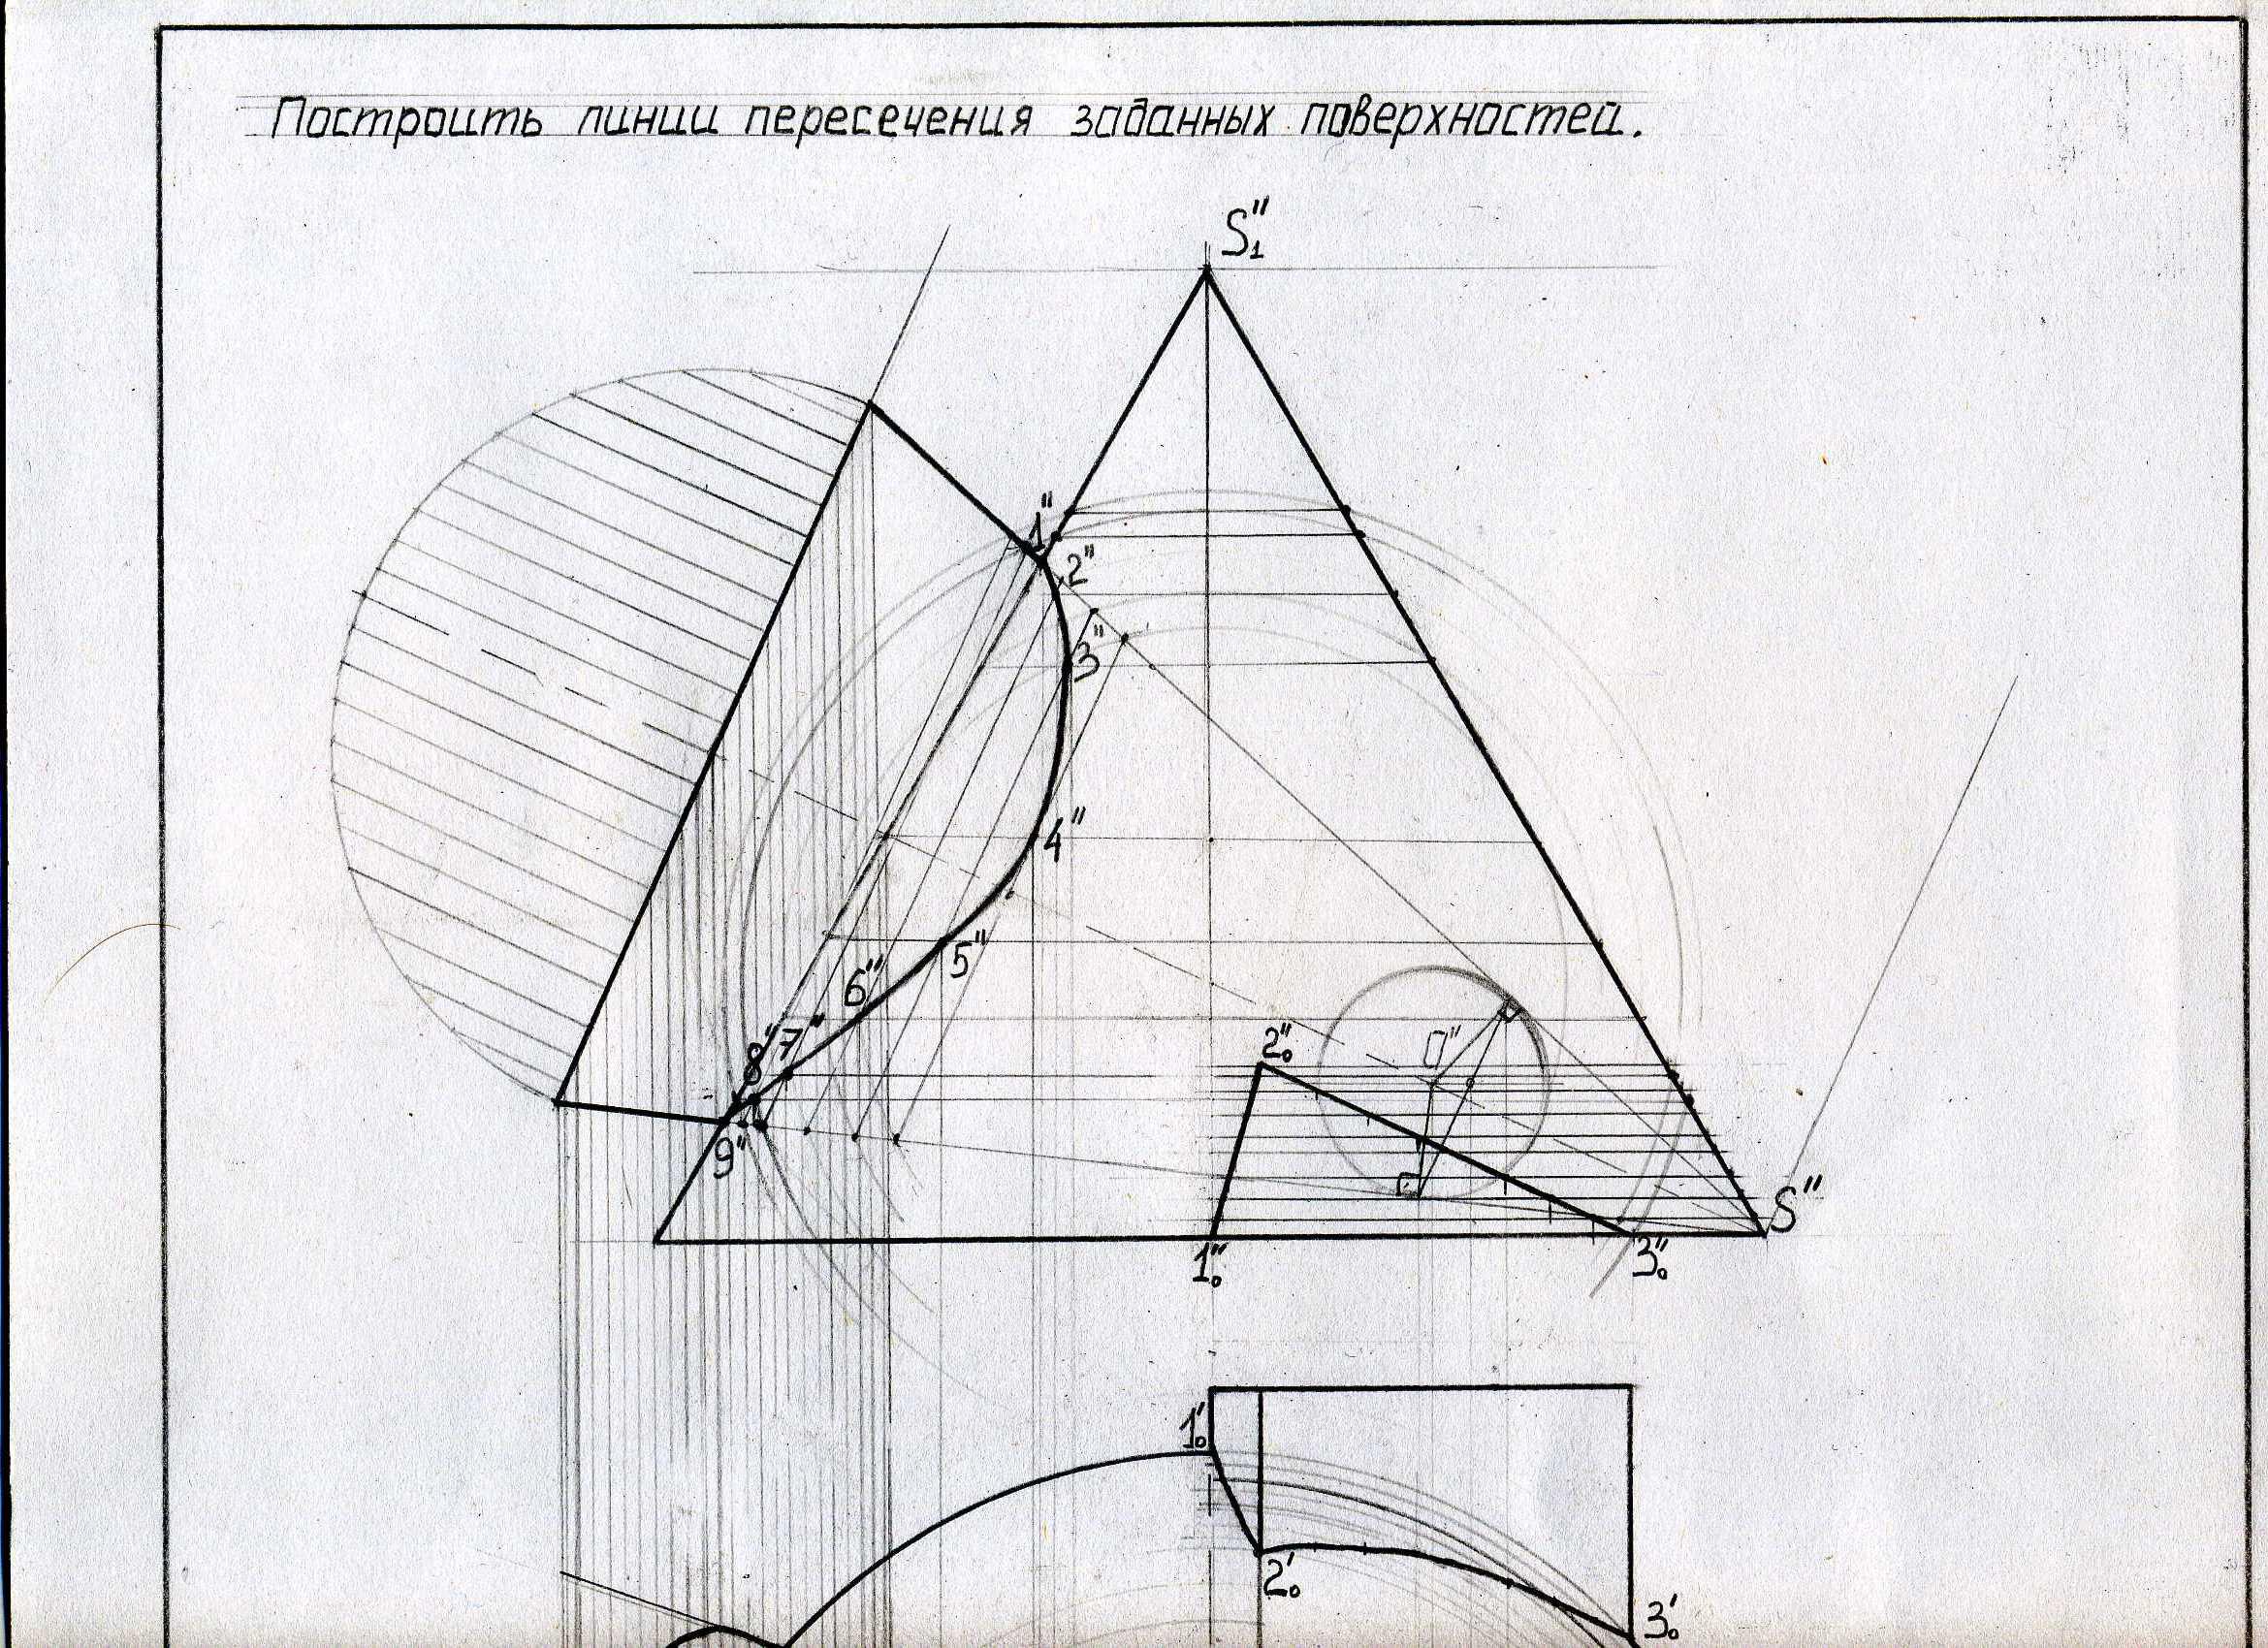 Построить линии пересечения заданных поверхностей.
S₁"
1"
2"
3"
4"
5"
6"
7"
8"
9"
O"
2₀"
S"
1₀"
3₀"
1₀'
2₀'
3₀'